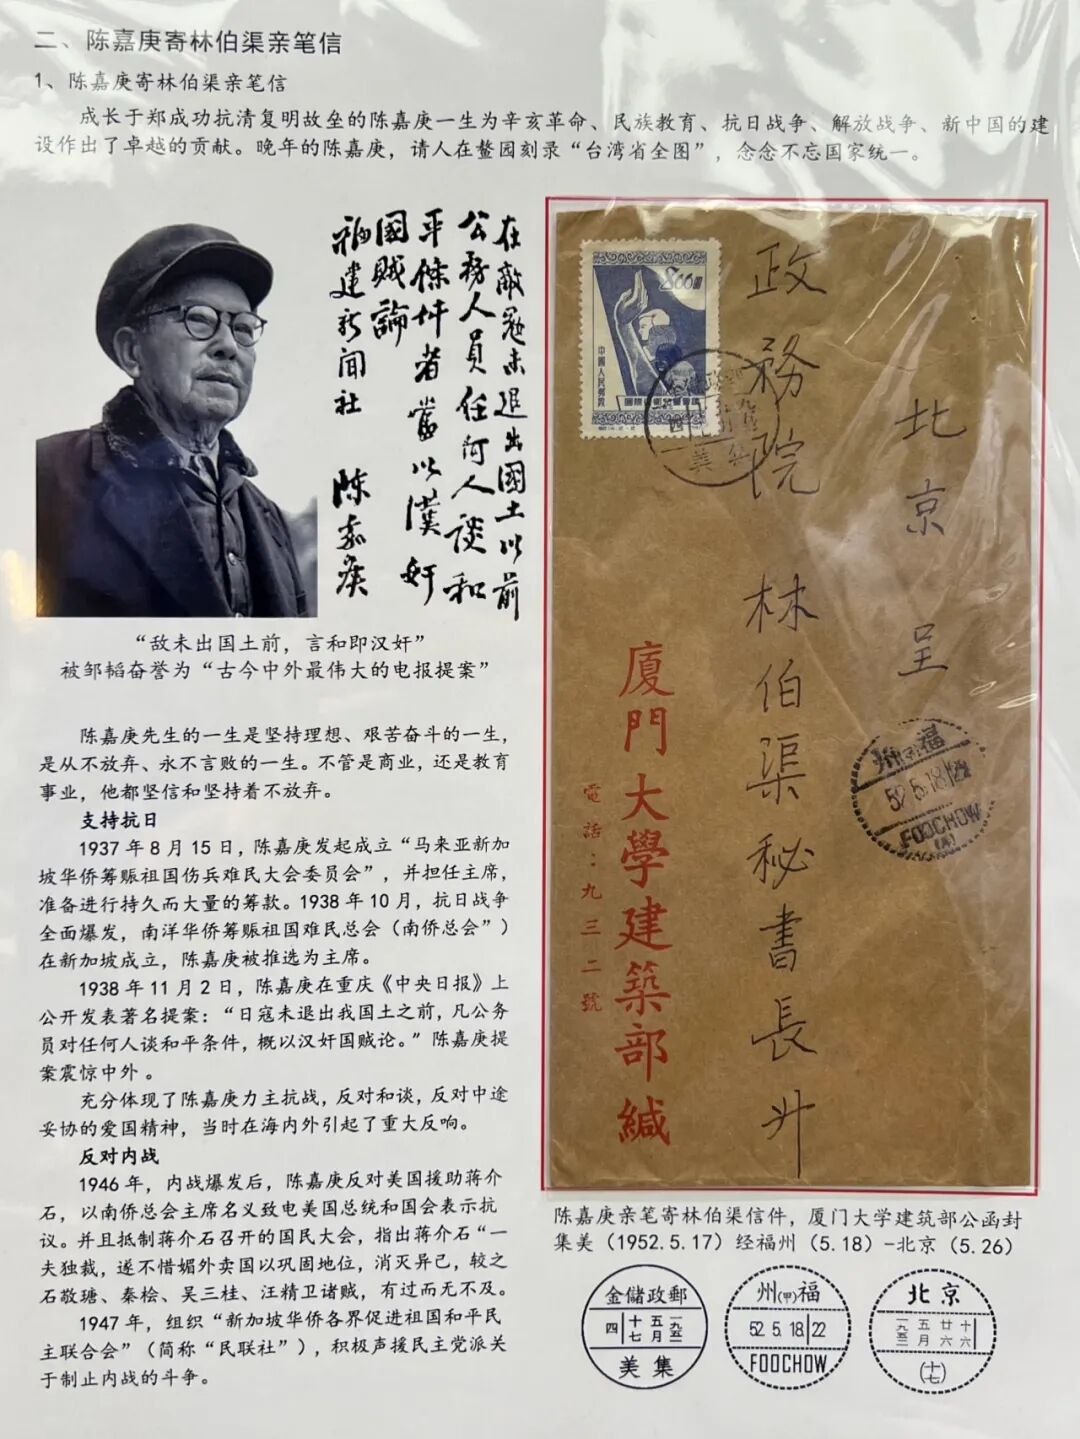 二、陈嘉庚寄林伯渠亲笔信
1、陈嘉庚寄林伯渠亲笔信
成长于郑成功抗清复明故垒的陈嘉庚一生为辛亥革命、民族教育、抗日战争、解放战争、新中国的建
设作出了卓越的贡献。晚年的陈嘉庚，请人在鳌园刻录“台湾省全图”，念念不忘国家统一。
在敵寇未退出國土以前
公務人員任何人谈和
平條件者當以漢奸
國賊論
福建新闻社 陈嘉庚
“敌未出国土前，言和即汉奸”
被邹韬奋誉为“古今中外最伟大的电报提案”
陈嘉庚先生的一生是坚持理想、艰苦奋斗的一生，
是从不放弃、永不言败的一生。不管是商业，还是教育
事业，他都坚信和坚持着不放弃。
支持抗日
1937年8月15日，陈嘉庚发起成立“马来亚新加
坡华侨筹赈祖国伤兵难民大会委员会”，并担任主席，
准备进行持久而大量的筹款。1938年10月，抗日战争
全面爆发，南洋华侨筹赈祖国难民总会（南侨总会”）
在新加坡成立，陈嘉庚被推选为主席。
1938年11月2日，陈嘉庚在重庆《中央日报》上
公开发表著名提案：“日寇未退出我国土之前，凡公务
员对任何人谈和平条件，概以汉奸国贼论。”陈嘉庚提
案震惊中外。
充分体现了陈嘉庚力主抗战，反对和谈，反对中途
妥协的爱国精神，当时在海内外引起了重大反响。
反对内战
1946年，内战爆发后，陈嘉庚反对美国援助蒋介
石，以南侨总会主席名义致电美国总统和国会表示抗
议。并且抵制蒋介石召开的国民大会，指出蒋介石“一
夫独裁，遂不惜媚外卖国以巩固地位，消灭异己，较之
石敬瑭、秦桧、吴三桂、汪精卫诸贼，有过而无不及。
1947年，组织“新加坡华侨各界促进祖国和平民
主联合会”（简称“民联社”），积极声援民主党派关
于制止内战的斗争。
北京 呈
政務院 林伯渠秘書長升
廈門大學建築部緘
電話：九三二號
800
中國人民郵政
美集
州福
52.5.18
FOOCHOW
陈嘉庚亲笔寄林伯渠信件，厦门大学建筑部公函封
集美（1952.5.17）经福州（5.18）-北京（5.26）
金儲政郵
四 十七 五月 一九五二
美集
州(甲)福
52 5.18 22
FOOCHOW
北京
一九五二 五月 廿六 十六
(十七)